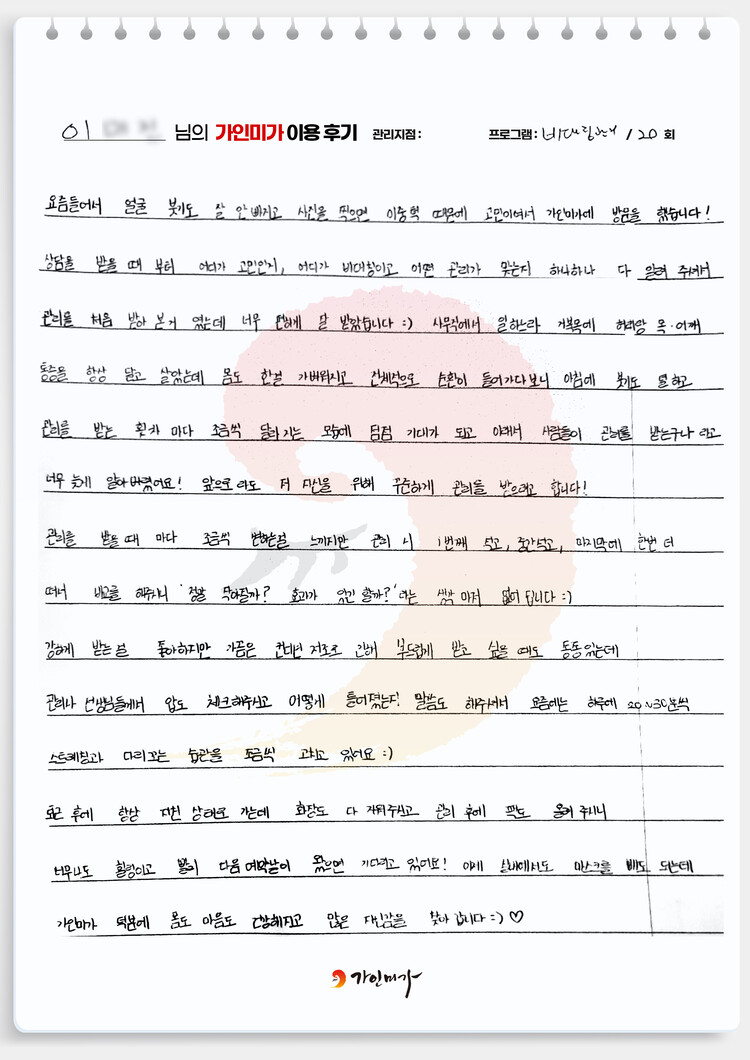 이 님의 가인미가 이용 후기 관리지점: 프로그램: 비대칭케어 / 20 회
요즘들어서 얼굴 붓기도 잘 안 빠지고 사진을 찍으면 이중턱 때문에 고민이여서 가인미가에 방문을 했습니다!
상담을 받을 때 부터 어디가 고민인지, 어디가 비대칭이고 어떤 관리가 맞는지 하나하나 다 알려 주셔서
관리를 처음 받아 본거 였는데 너무 편하게 잘 받았습니다 :) 사무직에서 일하느라 거북목에 목·어깨
통증을 항상 달고 살았는데 몸도 한결 가벼워지고 전체적으로 순환이 들어가다보니 아침에 붓기도 덜하고
관리를 받는 횟차 마다 조금씩 달라지는 모습에 점점 기대가 되고 이래서 사람들이 관리를 받는구나 라고
너무 늦게 알아버렸어요! 앞으로라도 저 자신을 위해 꾸준하게 관리를 받으려고 합니다!
관리를 받을때 마다 조금씩 변하는걸 느끼지만 관리 시 1번째 찍고, 중간찍고, 마지막에 한번 더
찍어 비교를 해주시니 '정말 작아질까? 효과가 있긴 할까?' 라는 생각 마저 없어 집니다 :)
강하게 받는걸 좋아하지만 가끔은 컨디션 저조로 인해 부드럽게 받고 싶을 때도 종종 있는데
관리사 선생님들께서 압도 체크해주시고 어떻게 틀어졌는지 말씀도 해주셔서 요즘에는 하루에 20~30분씩
스트레칭과 다리꼬는 습관을 조금씩 고치고 있어요 :)
퇴근 후에 항상 지친 상태로 가는데 화장도 다 지워주시고 관리 후에 팩도 올려 주시니
너무나도 힐링이고 빨리 다음 예약날이 왔으면 기다리고 있어요! 이제 실내에서도 마스크를 벗어도 되는데
가인미가 덕분에 몸도 마음도 건강해지고 많은 자신감을 찾아 갑니다 :) ♡
가인미가